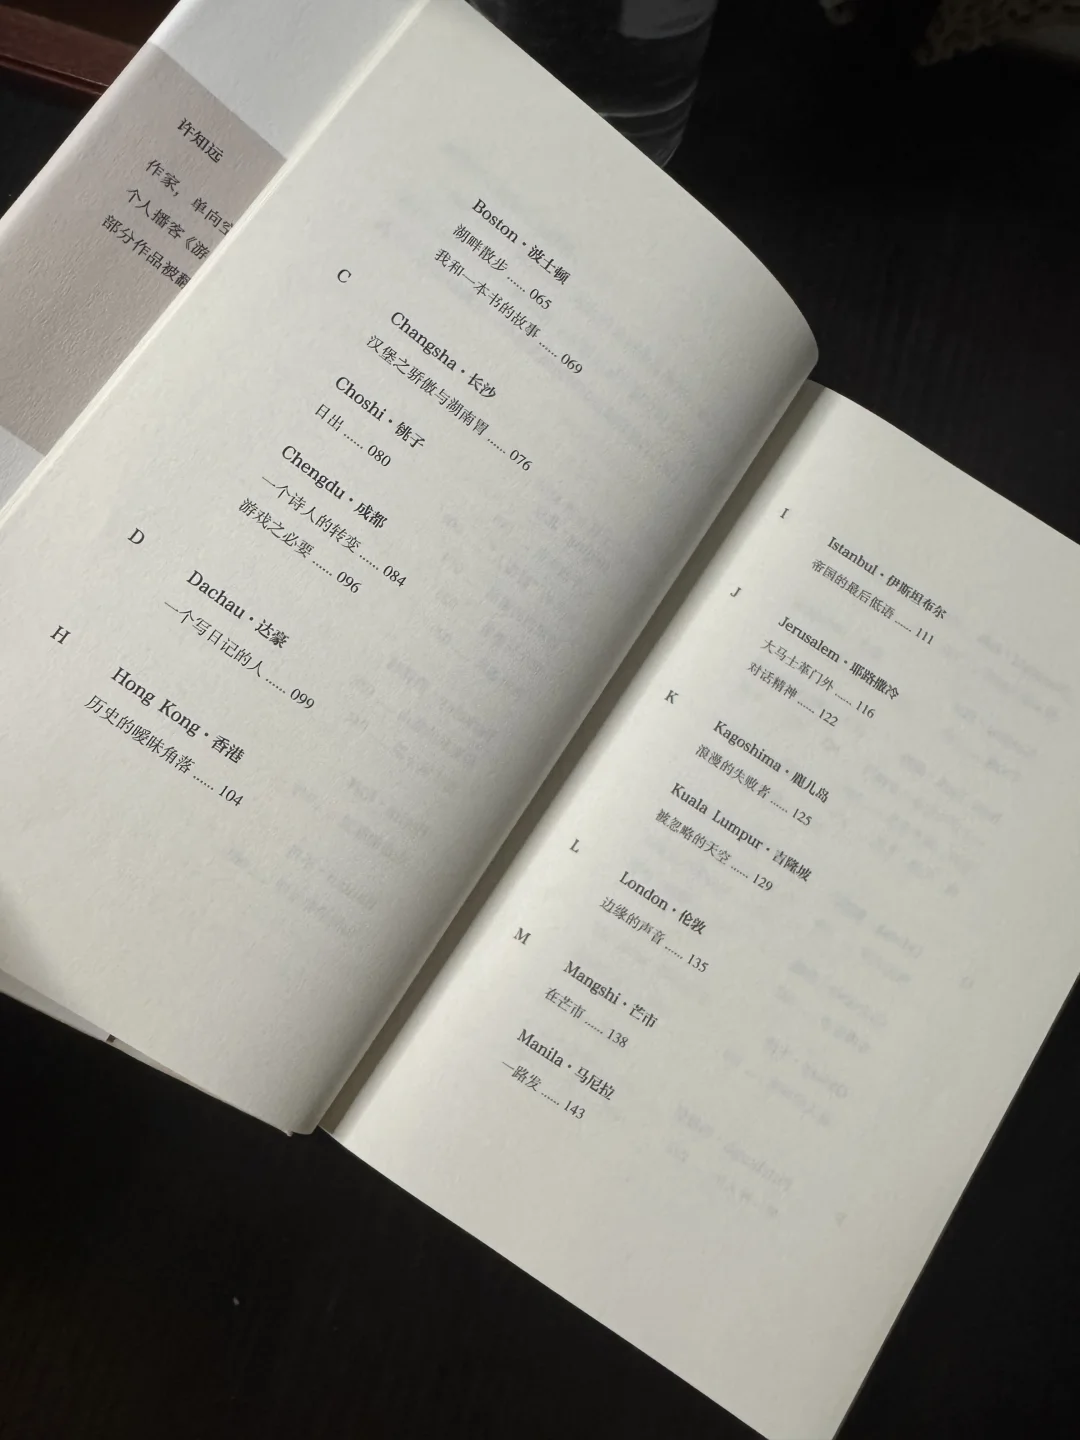 许知远
作家，单向空
个人播客《游
部分作品被翻
Boston·波士顿
湖畔散步 …… 065
我和一本书的故事 …… 069
C
Changsha·长沙
汉堡之骄傲与湖南胃 …… 076
Choshi·铫子
日出 …… 080
Chengdu·成都
一个诗人的转变 …… 084
游戏之必要 …… 096
D
Dachau·达豪
一个写日记的人 …… 099
H
Hong Kong·香港
历史的暧昧角落 …… 104
I
Istanbul·伊斯坦布尔
帝国的最后低语 …… 111
J
Jerusalem·耶路撒冷
大马士革门外 …… 116
对话精神 …… 122
K
Kagoshima·鹿儿岛
浪漫的失败者 …… 125
Kuala Lumpur·吉隆坡
被忽略的天空 …… 129
L
London·伦敦
边缘的声音 …… 135
M
Mangshi·芒市
在芒市 …… 138
Manila·马尼拉
一路发 …… 143